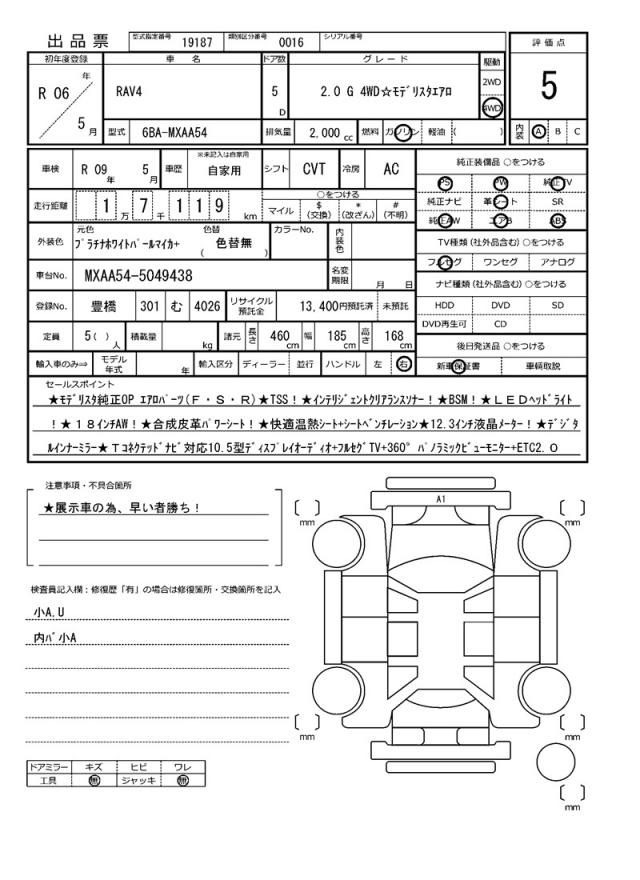 出品票 型式指定番号 19187 類別区分番号 0016 シリアル番号
評価点
5
内装 A B C
初年度登録 車名 ドア数 グレード 駆動
R 06 年 5 月 RAV4 5 D 2.0 G 4WD☆ﾓﾃﾞﾘｽﾀｴｱﾛ 2WD 4WD
型式 6BA-MXAA54 排気量 2,000 cc 燃料 ガソリン 軽油 ( )
車検 R 09 年 5 月 車歴 ※未記入は自家用 自家用 シフト CVT 冷房 AC
走行距離 1 万 7 千 1 1 9 km ○をつける マイル $ (交換) * (改ざん) # (不明)
外装色 元色 ﾌﾟﾗﾁﾅﾎﾜｲﾄﾊﾟｰﾙﾏｲｶ+ 色替 ( 色替無 ) カラーNo. 内装色
車台No. MXAA54-5049438 名変期限 月 日
登録No. 豊橋 301 む 4026 リサイクル預託金 13,400円預託済 未預託
定員 5( ) 人 積載量 kg 諸元 長さ 460 cm 幅 185 cm 高さ 168 cm
輸入車のみ⇒ モデル年式 年 輸入区分 ディーラー 並行 ハンドル 左 右
純正装備品 ○をつける
PS PW 純正TV
純正ナビ 革シート SR
純正AW エアB ABS
TV種類(社外品含む) ○をつける
フルセグ ワンセグ アナログ
ナビ種類(社外品含む) ○をつける
HDD DVD SD
DVD再生可 CD
後日発送品 ○をつける
新車保証書 車輌取説
セールスポイント
★ﾓﾃﾞﾘｽﾀ純正OP ｴｱﾛﾊﾟｰﾂ(F・S・R)★TSS!★ｲﾝﾃﾘｼﾞｪﾝﾄｸﾘｱﾗﾝｽｿﾅｰ!★BSM!★LEDﾍｯﾄﾞﾗｲﾄ
!★18ｲﾝﾁAW!★合成皮革ﾊﾟﾜｰｼｰﾄ!★快適温熱ｼｰﾄ+ｼｰﾄﾍﾞﾝﾁﾚｰｼｮﾝ★12.3ｲﾝﾁ液晶ﾒｰﾀｰ!★ﾃﾞｼﾞﾀ
ﾙｲﾝﾅｰﾐﾗｰ★Tｺﾈｸﾃｯﾄﾞﾅﾋﾞ対応10.5型ﾃﾞｨｽﾌﾟﾚｲｵｰﾃﾞｨｵ+ﾌﾙｾｸﾞTV+360°ﾊﾟﾉﾗﾐｯｸﾋﾞｭｰﾓﾆﾀｰ+ETC2.0
注意事項・不具合箇所
★展示車の為、早い者勝ち!
検査員記入欄:修復歴「有」の場合は修復箇所・交換箇所を記入
小A.U
内ﾊﾞ小A
ドアミラー キズ ヒビ ワレ
工具 無 ジャッキ 無
A1
mm
mm
mm
mm
mm